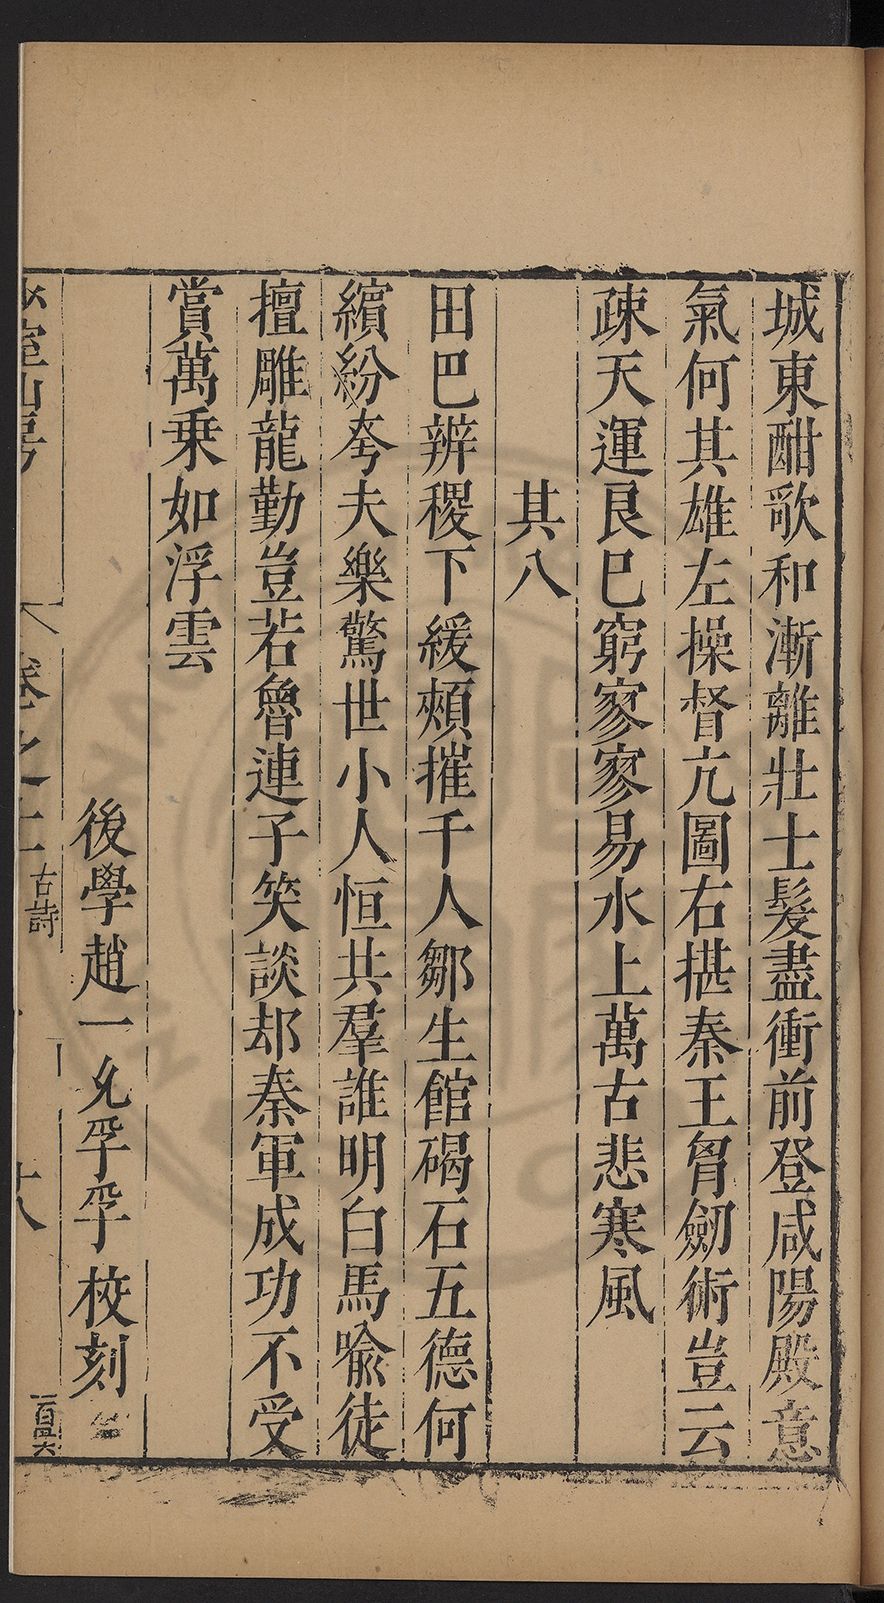 城東酣歌和漸離壯士髮盡衝前登咸陽殿意
氣何其雄左操督亢圖右揕秦王胷劒術豈云
疎天運良已窮寥寥易水上萬古悲寒風
其八
田巴辨稷下緩頰摧千人鄒生館碣石五德何
繽紛夸夫樂驚世小人恒共羣誰明白馬喻徒
擅雕龍勤豈若魯連子笑談却秦軍成功不受
賞萬乗如浮雲
後學趙一允孚孚校刻
少室山房 卷之十 古詩 十八